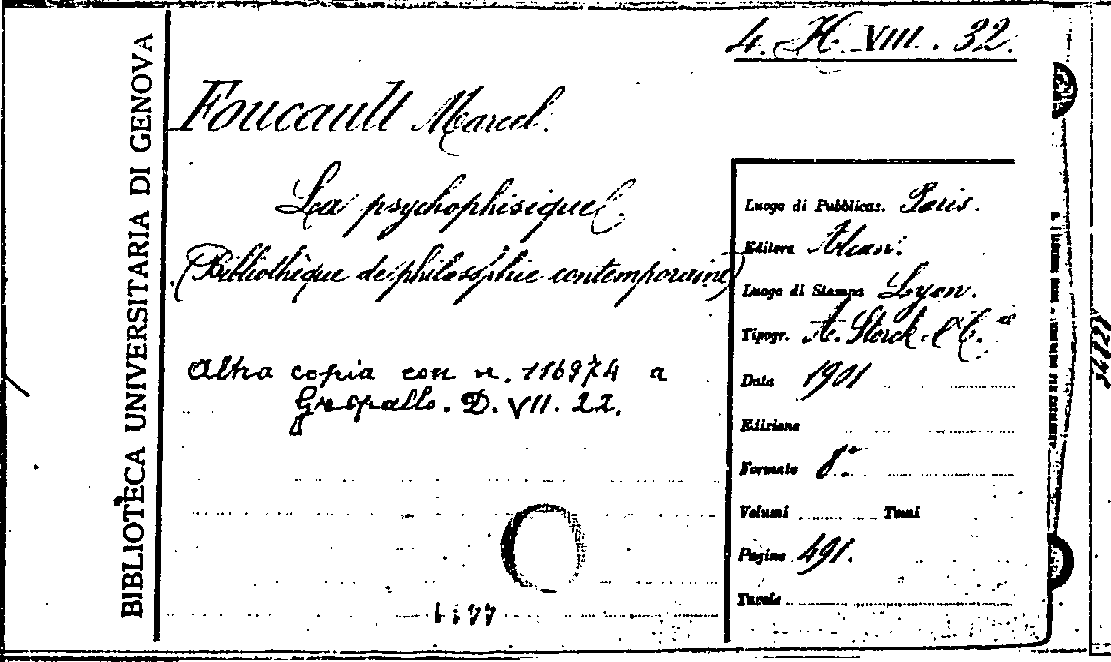 4. H. VIII. 32.
BIBLIOTECA UNIVERSITARIA DI GENOVA
Foucault Marcel.
La psychophisique
(Bibliothèque de philosophie contemporaine)
Altra copia con n. 116974 a
Gropallo. D. VII. 22.
Luogo di Pubblicaz. Paris.
Editore Alcan.
Luogo di Stampa Lyon.
Tipogr. A. Storck. & C.ie
Data 1901
Edizione
Formato 8°
Volumi Tomi
Pagine 491.
Tavole